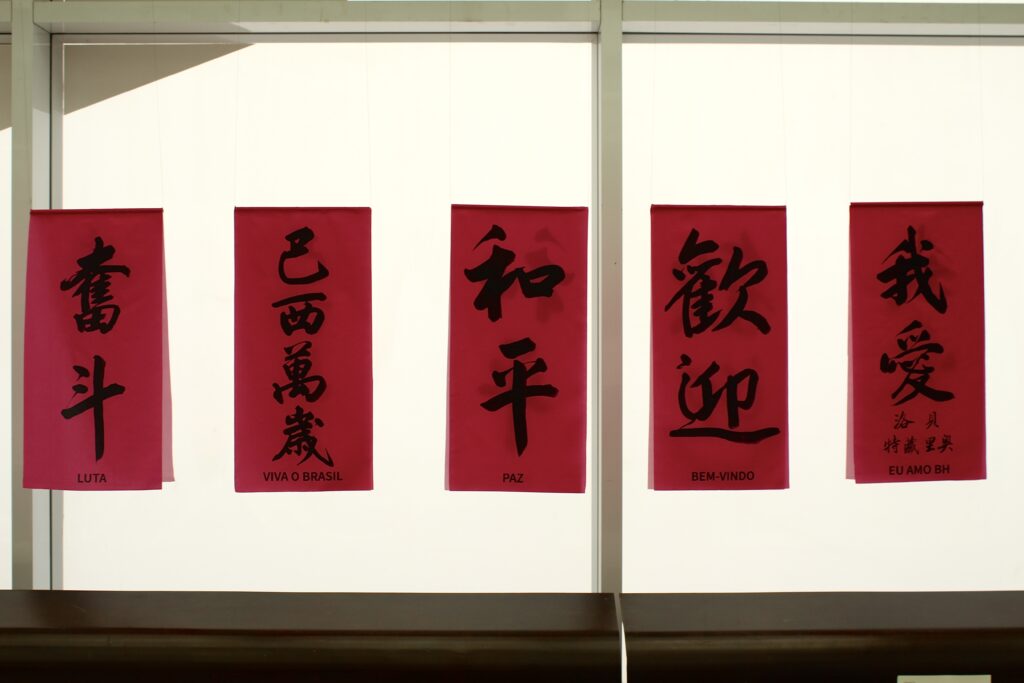 奮斗
LUTA
巴西萬歲
VIVA O BRASIL
和平
PAZ
歡迎
BEM-VINDO
我愛
貝洛
奥里藏特
EU AMO BH